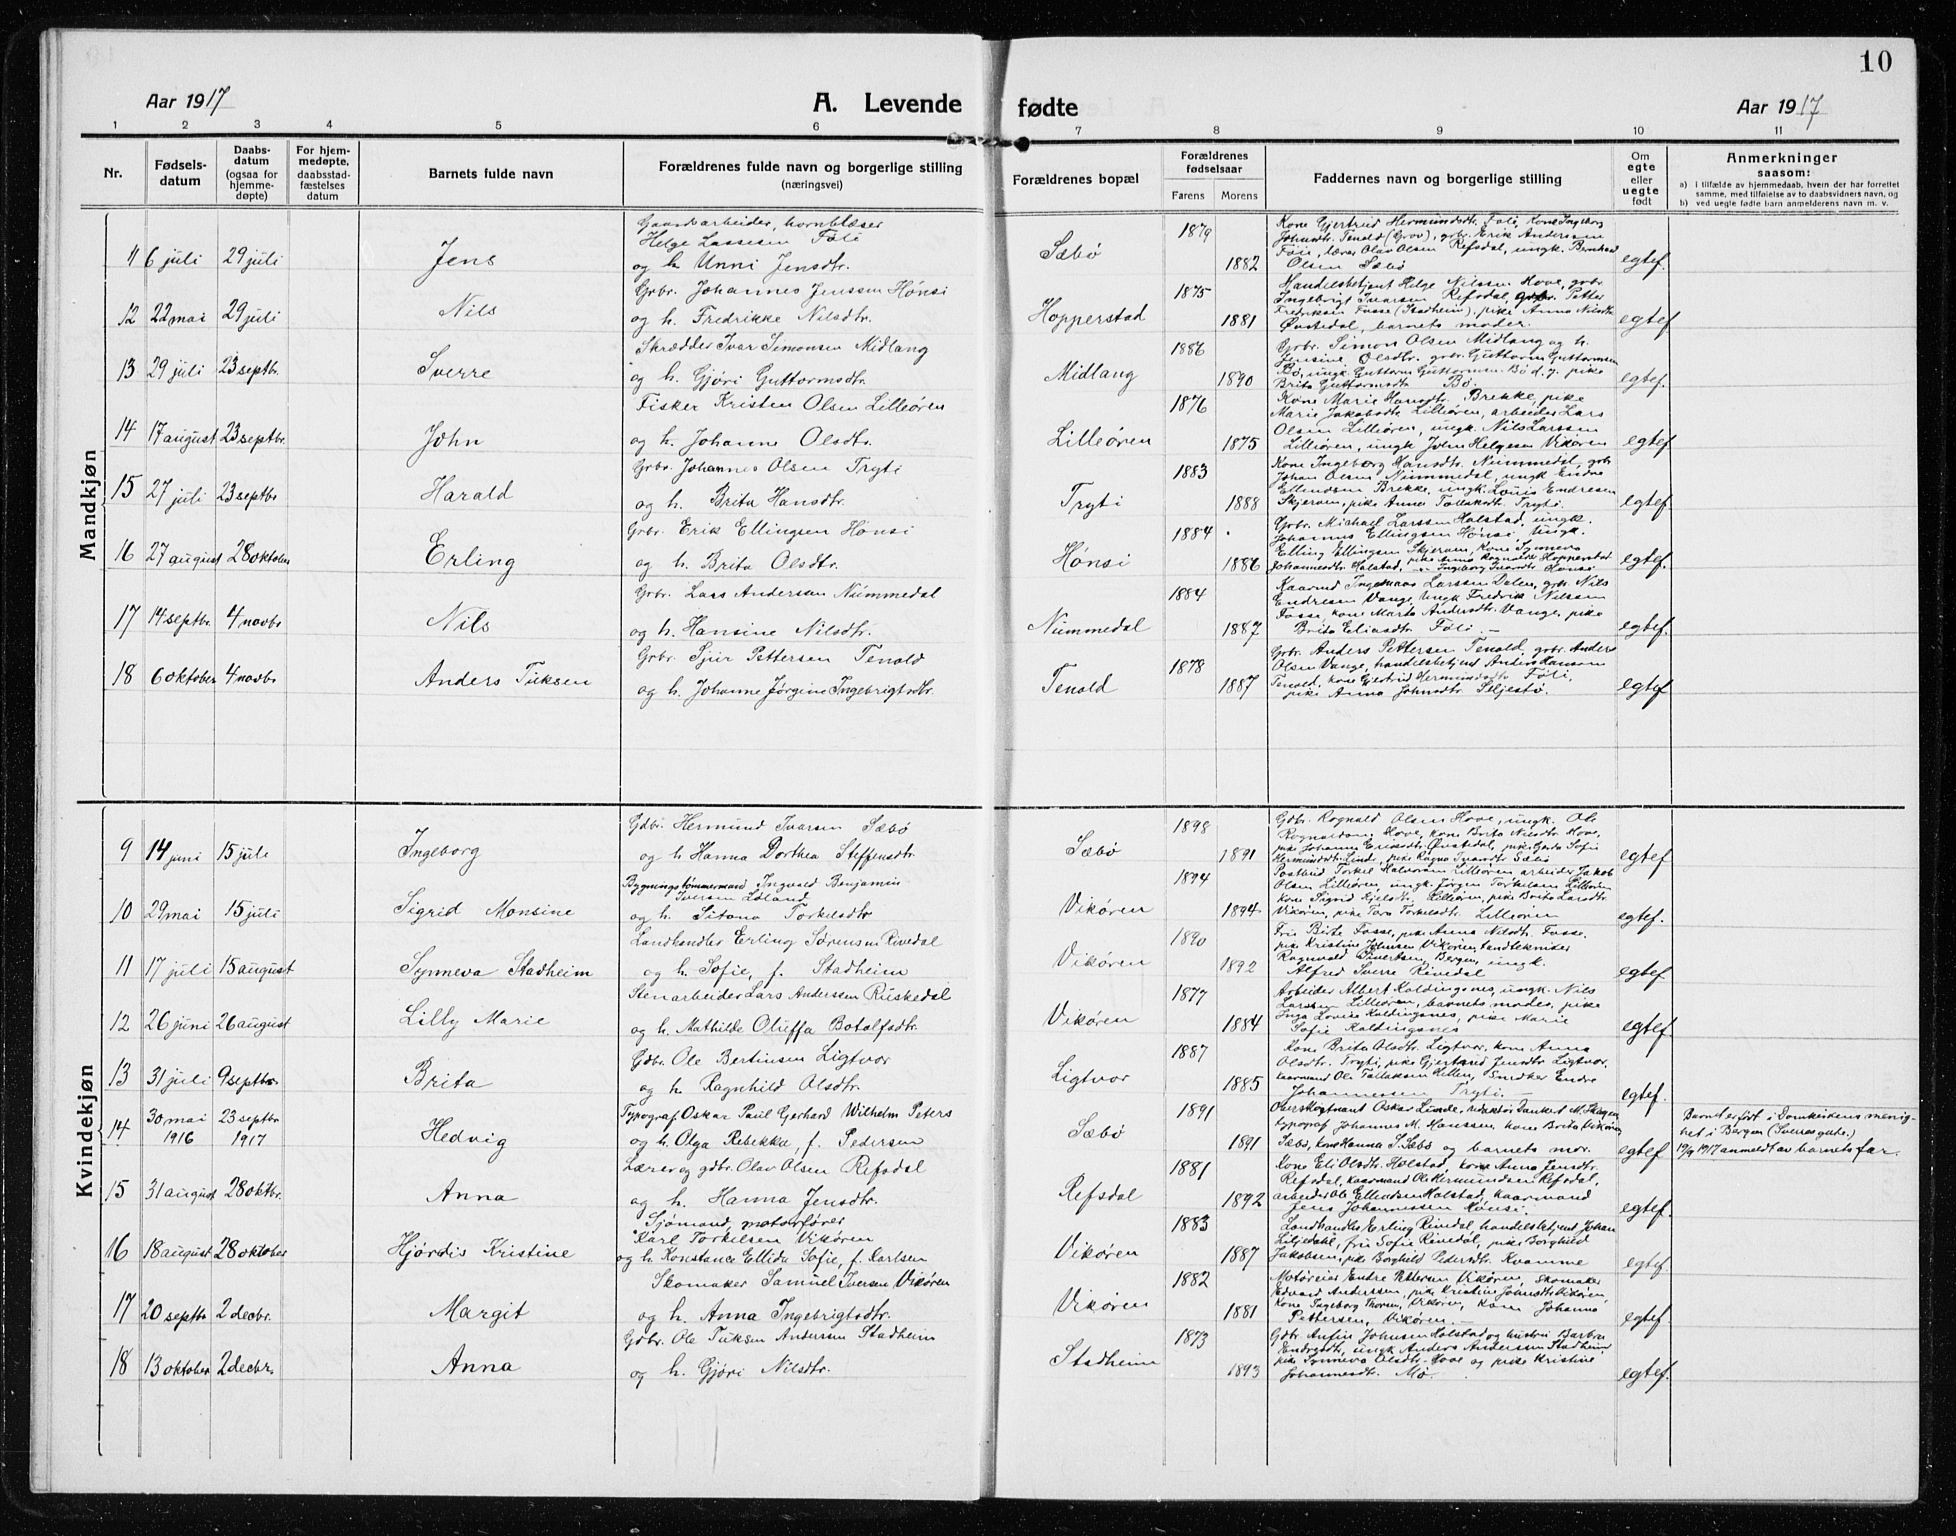 10
Aar 1917 A. Levende fødte Aar 1917
1 2 3 4 5 6 7 8 9 10 11
Nr. Fødselsdatum Daabsdatum (ogsaa for hjemmedøpte) For hjemmedøpte, daabsstadfæstelses datum Barnets fulde navn Forældrenes fulde navn og borgerlige stilling (næringsvei) Forældrenes bopæl Forældrenes fødselsaar Farens Morens Faddernes navn og borgerlige stilling Om egte eller uegte født Anmerkninger saasom:
a) i tilfælde av hjemmedaab, hvem der har forrettet samme, med tilføielse av to daabsvidners navn, og
b) ved uegte fødte barn anmelderens navn m. v.
Mandkjøn
Gaardsarbeider, hornblæser
Helge Lassesen Føli 1879 Kone Gjertrud Hermundsdtr. Føli, Kone Ingeborg
Johnsdtr. Tenold (Grov), grbr. Erik Anderssen
11 6 juli 29 juli Jens og h. Unni Jensdtr. Sæbø 1882 Føli, lærer Olav Olsen Refsdal, ungk. Bernhard egtef.
Olsen Sæbø
Grbr. Johannes Jenssen Hønsi 1875 Handelsbetjent Helge Nilssen Hove, grbr.
Ingebrigt Ivarsen Refsdal, grbr. Petter
12 22 mai 29 juli Nils og h. Fredrikke Nilsdtr. Hopperstad 1881 Fredriksen Fosse (Stadheim), pike Anna Nilsdtr. egtef.
Øvstedal, barnets moder.
Skrædder Ivar Simonsen Midlang 1886 Grbr. Simon Olsen Midlang og h.
Jensine Olsdtr. grbr. Guttorm Guttormsen
13 29 juli 23 septbr. Sverre og h. Gjøri Guttormsdtr. Midlang 1890 Bø, ungk. Guttorm Guttormsen Bø d. y. pike egtef.
Brita Guttormsdtr. Bø.
Fisker Kristen Olsen Lilleøren 1876 Kone Marie Hansdtr. Brekke, pike
Marie Jakobsdtr. Lilleøren, arbeider Lars
14 17 august 23 septbr. John og h. Johanne Olsdtr. Lilleøren 1875 Olsen Lilleøren, ungk. Nils Larssen egtef.
Lilleøren, ungk John Helgesen Vikøren
Grbr. Johannes Olsen Tryti 1883 Kone Ingeborg Hansdtr. Nummedal, grbr
Johan Olsen Nummedal, ungk Endre
15 27 juli 23 septbr Harald og h. Brita Hansdtr. Tryti 1888 Ellendsen Brekke, ungk. Louis Endresen egtef.
Skjerven, pike Anna Tollaksdtr. Tryti.
Grbr. Erik Ellingsen Hønsi 1884 Grbr. Michael Larssen Holstad, ungk.
Johannes Ellingsen Hønsi, Ungk.
16 27 august 28 oktober Erling og h. Brita Olsdtr. Hønsi 1886 Elling Ellingsen Skjerven, Kone Synneva egtef.
Johannesdtr. Holstad, pike Anna Ragnaldsdtr. Hopperstad
Grbr. Lars Andersen Nummedal 1884 Kaarmd Ingemar Larssen Dalen, grbr. Nils
Endresen Vange, ungk Fredrik Nilssen
17 14 septbr. 4 novbr Nils og h. Hansine Nilsdtr. Nummedal 1887 Fosse, kone Marta Andersdtr. Vange, pike egtef.
Brita Eliasdtr. Føli —
Grbr. Sjur Pettersen Tenold 1878 Grbr. Anders Pettersen Tenold, grbr. Anders
Olsen Vange, handelsbetjent Anders Hansen
18 6 oktober 4 novbr Anders Tuksen og h. Johanne Jørgine Ingebrigtsdtr. Tenold 1887 Tenold, kone Gjertrud Hermundsdtr Føli, egtef.
pike Anna Johnsdtr. Seljestø.
Kvindekjøn
Gdbr. Hermund Ivarsen Sæbø 1898 Gdbr. Rognald Olsen Hove, ungk. Ole
Rognaldsen Hove, kone Brita Nilsdtr. Hove,
9 14 juni 15 juli Ingeborg og h Hanna Dorthea Steffensdtr Sæbø 1891 pike Johanna Eriksdtr. Øvstedal, pike Gerda Sofie egtef.
Hermundsdtr. Linde, pike Ragna Ivarsdtr. Sæbø
Bygningstømmermand Ingvald Benjamin
Iversen Loland 1894 Postbud Torkel Halvorsen Lilleøren arbeider Jakob
Olsen Lilleøren, ungk. Jørgen Torkelsen Lilleøren
10 29 mai 15 juli Sigrid Monsine og h. Sitana Torkelsdtr Vikøren 1894 Kone Sigrid Kjelsdtr. Lilleøren, pike Brita Larsdtr. egtef.
Vikøren, pike Tora Torkelsdtr. Lilleøren
Landhandler Erling Sørensen Rivedal 1890 Fru Birte Fosse, pike Anna Nilsdtr. Fosse.
pike Kristine Johnsen Vikøren, tandtekniker
11 17 juli 15 august Synneva Stadheim og h. Sofie, f. Stadheim Vikøren 1892 Rognvald Sivertsen, Bergen, ungk. egtef.
Alfred Sverre Rivedal
Stenarbeider Lars Anderssen Ruskedal 1877 Arbeider Albert Koldingsnes, ungk. Nils
Larssen Lilleøren, barnets moder, pike
12 26 juni 26 august Lilly Marie og h. Mathilde Oluffa Botolfsdtr. Vikøren 1884 Inga Lovise Koldingsnes, pike Marie egtef.
Sofie Koldingsnes
Gdbr. Ole Bertinsen Ligtvor 1887 Kone Brita Olsdtr. Ligtvor, kone Anna
Olsdtr. Tryti, pike Gjertrud Jensdtr Ligtvor,
13 31 juli 9 septbr. Brita og h. Ragnhild Olsdtr. Ligtvor 1885 kaarmand Ole Tollaksen Hellen, Snedker Endre egtef.
Johannessen Tryti. —
Typograf Oskar Paul Gerhard Wilhelm Peters 1891 Overskogtaxant Oskar Linde, redaktør Dankert M. Skagen, Barnet er født i Domkirkens menig-
14 30 mai 1916 23 septbr 1917 Hedvig og h. Olga Rebekka, f. Pedersen Sæbø 1891 typograf Johannes M. Hanssen, kone Brita Vikøren, egtef het i Bergen (Sverresgate.)
Sæbø, kone Hanna S. Sæbø og barnets mor. 19/9 1917 anmeldt av barnets far.
Lærer og gdbr. Olav Olsen Refsdal 1881 Kone Eli Olsdtr. Holstad, kone Anna Jensdtr.
Refsdal, kaarmand Ole Hermundsen Refsdal,
15 31 august 28 oktbr. Anna og h. Hanna Jensdtr. Refsdal 1892 arbeider Ole Ellendsen Holstad, kaarmand egtef.
Jens Johannessen Hønsi.
Sjømand, motorfører
Karl Torkelsen Vikøren 1883 Landhandler Erling Rivedal, handelsbetjent Johan
Liljedahl, fru Sofie Rivedal, pike Borghild
16 18 august 28 oktober Hjørdis Kristine og h. Konstance Ellida Sofie, f. Karlsen Vikøren 1887 Jakobsen, pike Borghild Pedersdtr. Kvamme egtef.
Skomaker Samuel Iversen Vikøren 1882 Motoreier Endre Pettersen Vikøren, Skomaker
Edvard Anderssen, pike Kristine Johnsdtr Vikøren,
17 20 septbr 2 decbr. Margit og h. Anna Ingebrigtsdtr. Vikøren 1881 Kone Ingeborg Thorsen, Vikøren, kone Johanna egtef.
Pettersen, Vikøren. —
Gdbr. Ole Tuksen Andersen Stadheim 1873 Gdbr. Anfin Johnsen Holstad og hustru Barbra
Endresdtr, ungk Anders Anderssen Stadheim,
18 13 oktober 2 decbr. Anna og h. Gjøri Nilsdtr. Stadheim 1893 pike Synneva Olsdtr. Hove og pike Kristine egtef.
Johannesdtr. Mo.